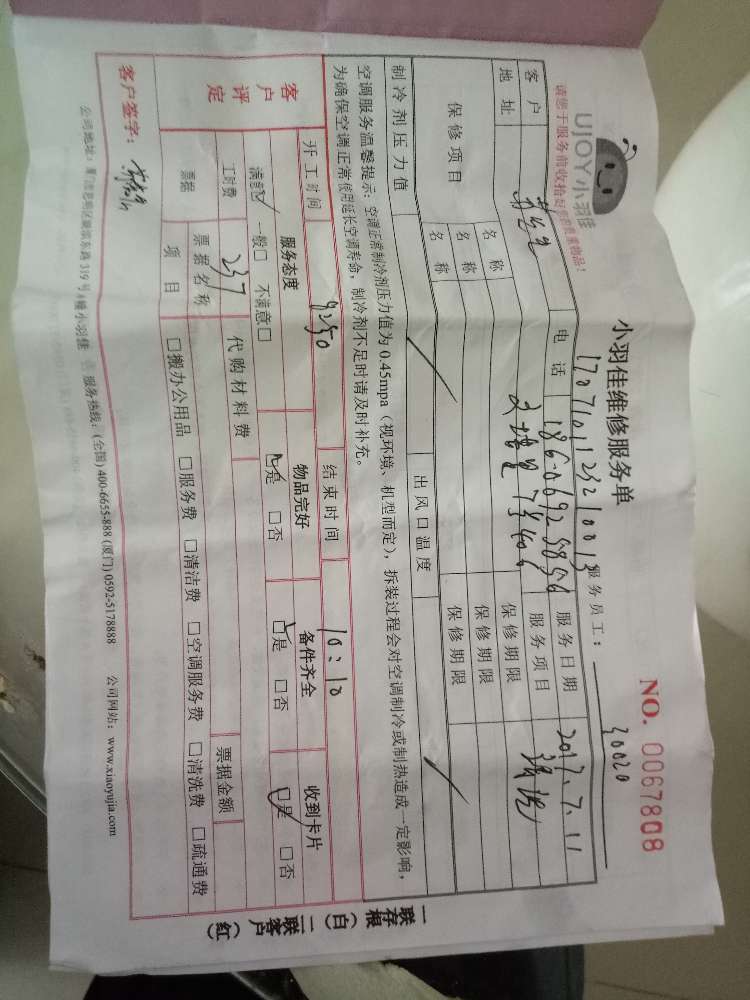 UJOY小羽佳
请您于服务前收拾好您的贵重物品!
小羽佳维修服务单
NO. 0067808
1707101123210013
服务员工: 30020
客户 电话 服务日期 2017.7.11
地址 7号406 服务项目
保修项目 名称 保修期限
名称 保修期限
名称 保修期限
制冷剂压力值 出风口温度
空调服务温馨提示: 空调正常制冷剂压力值为 0.45mpa (视环境、机型而定), 拆装过程会对空调制冷或制热造成一定影响,
为确保空调正常使用延长空调寿命, 制冷剂不足时请及时补充。
开工时间 9:50 结束时间 10:10
客户评定 服务态度 物品完好 备件齐全 收到卡片
满意☑ 一般□ 不满意□ ☑是 □否 ☑是 □否 ☑是 □否
工时费 237 代购材料费 票据金额
票据 票据名称
项目 □搬办公用品 □服务费 □清洁费 □空调服务费 □清洗费 □疏通费
客户签字:
一联存根(白) 二联客户(红)
服务热线: (全国) 400-6655-888 (厦门) 0592-5178888 公司网站: www.xiaoyujia.com